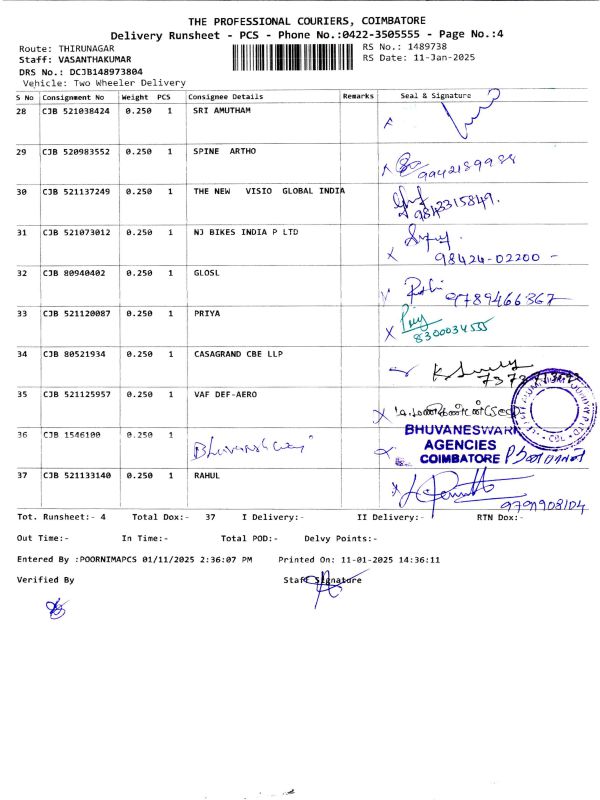 THE PROFESSIONAL COURIERS, COIMBATORE
Delivery Runsheet - PCS - Phone No.:0422-3505555 - Page No.:4
Route: THIRUNAGAR RS No.: 1489738
Staff: VASANTHAKUMAR RS Date: 11-Jan-2025
DRS No.: DCJB148973804
Vehicle: Two Wheeler Delivery
S No Consignment No Weight PCS Consignee Details Remarks Seal & Signature
28 CJB 521038424 0.250 1 SRI AMUTHAM
29 CJB 520983552 0.250 1 SPINE ARTHO
9942189984
30 CJB 521137249 0.250 1 THE NEW VISIO GLOBAL INDIA
9843315849.
31 CJB 521073012 0.250 1 NJ BIKES INDIA P LTD
98424-02200 -
32 CJB 80940402 0.250 1 GLOSL
9789466367
33 CJB 521120087 0.250 1 PRIYA
8300034555
34 CJB 80521934 0.250 1 CASAGRAND CBE LLP
35 CJB 521125957 0.250 1 VAF DEF-AERO
36 CJB 1546100 0.250 1
BHUVANESWARI
AGENCIES
COIMBATORE
37 CJB 521133140 0.250 1 RAHUL
9791908104
Tot. Runsheet:- 4 Total Dox:- 37 I Delivery:- II Delivery:- RTN Dox:-
Out Time:- In Time:- Total POD:- Delvy Points:-
Entered By :POORNIMAPCS 01/11/2025 2:36:07 PM Printed On: 11-01-2025 14:36:11
Verified By Staff Signature